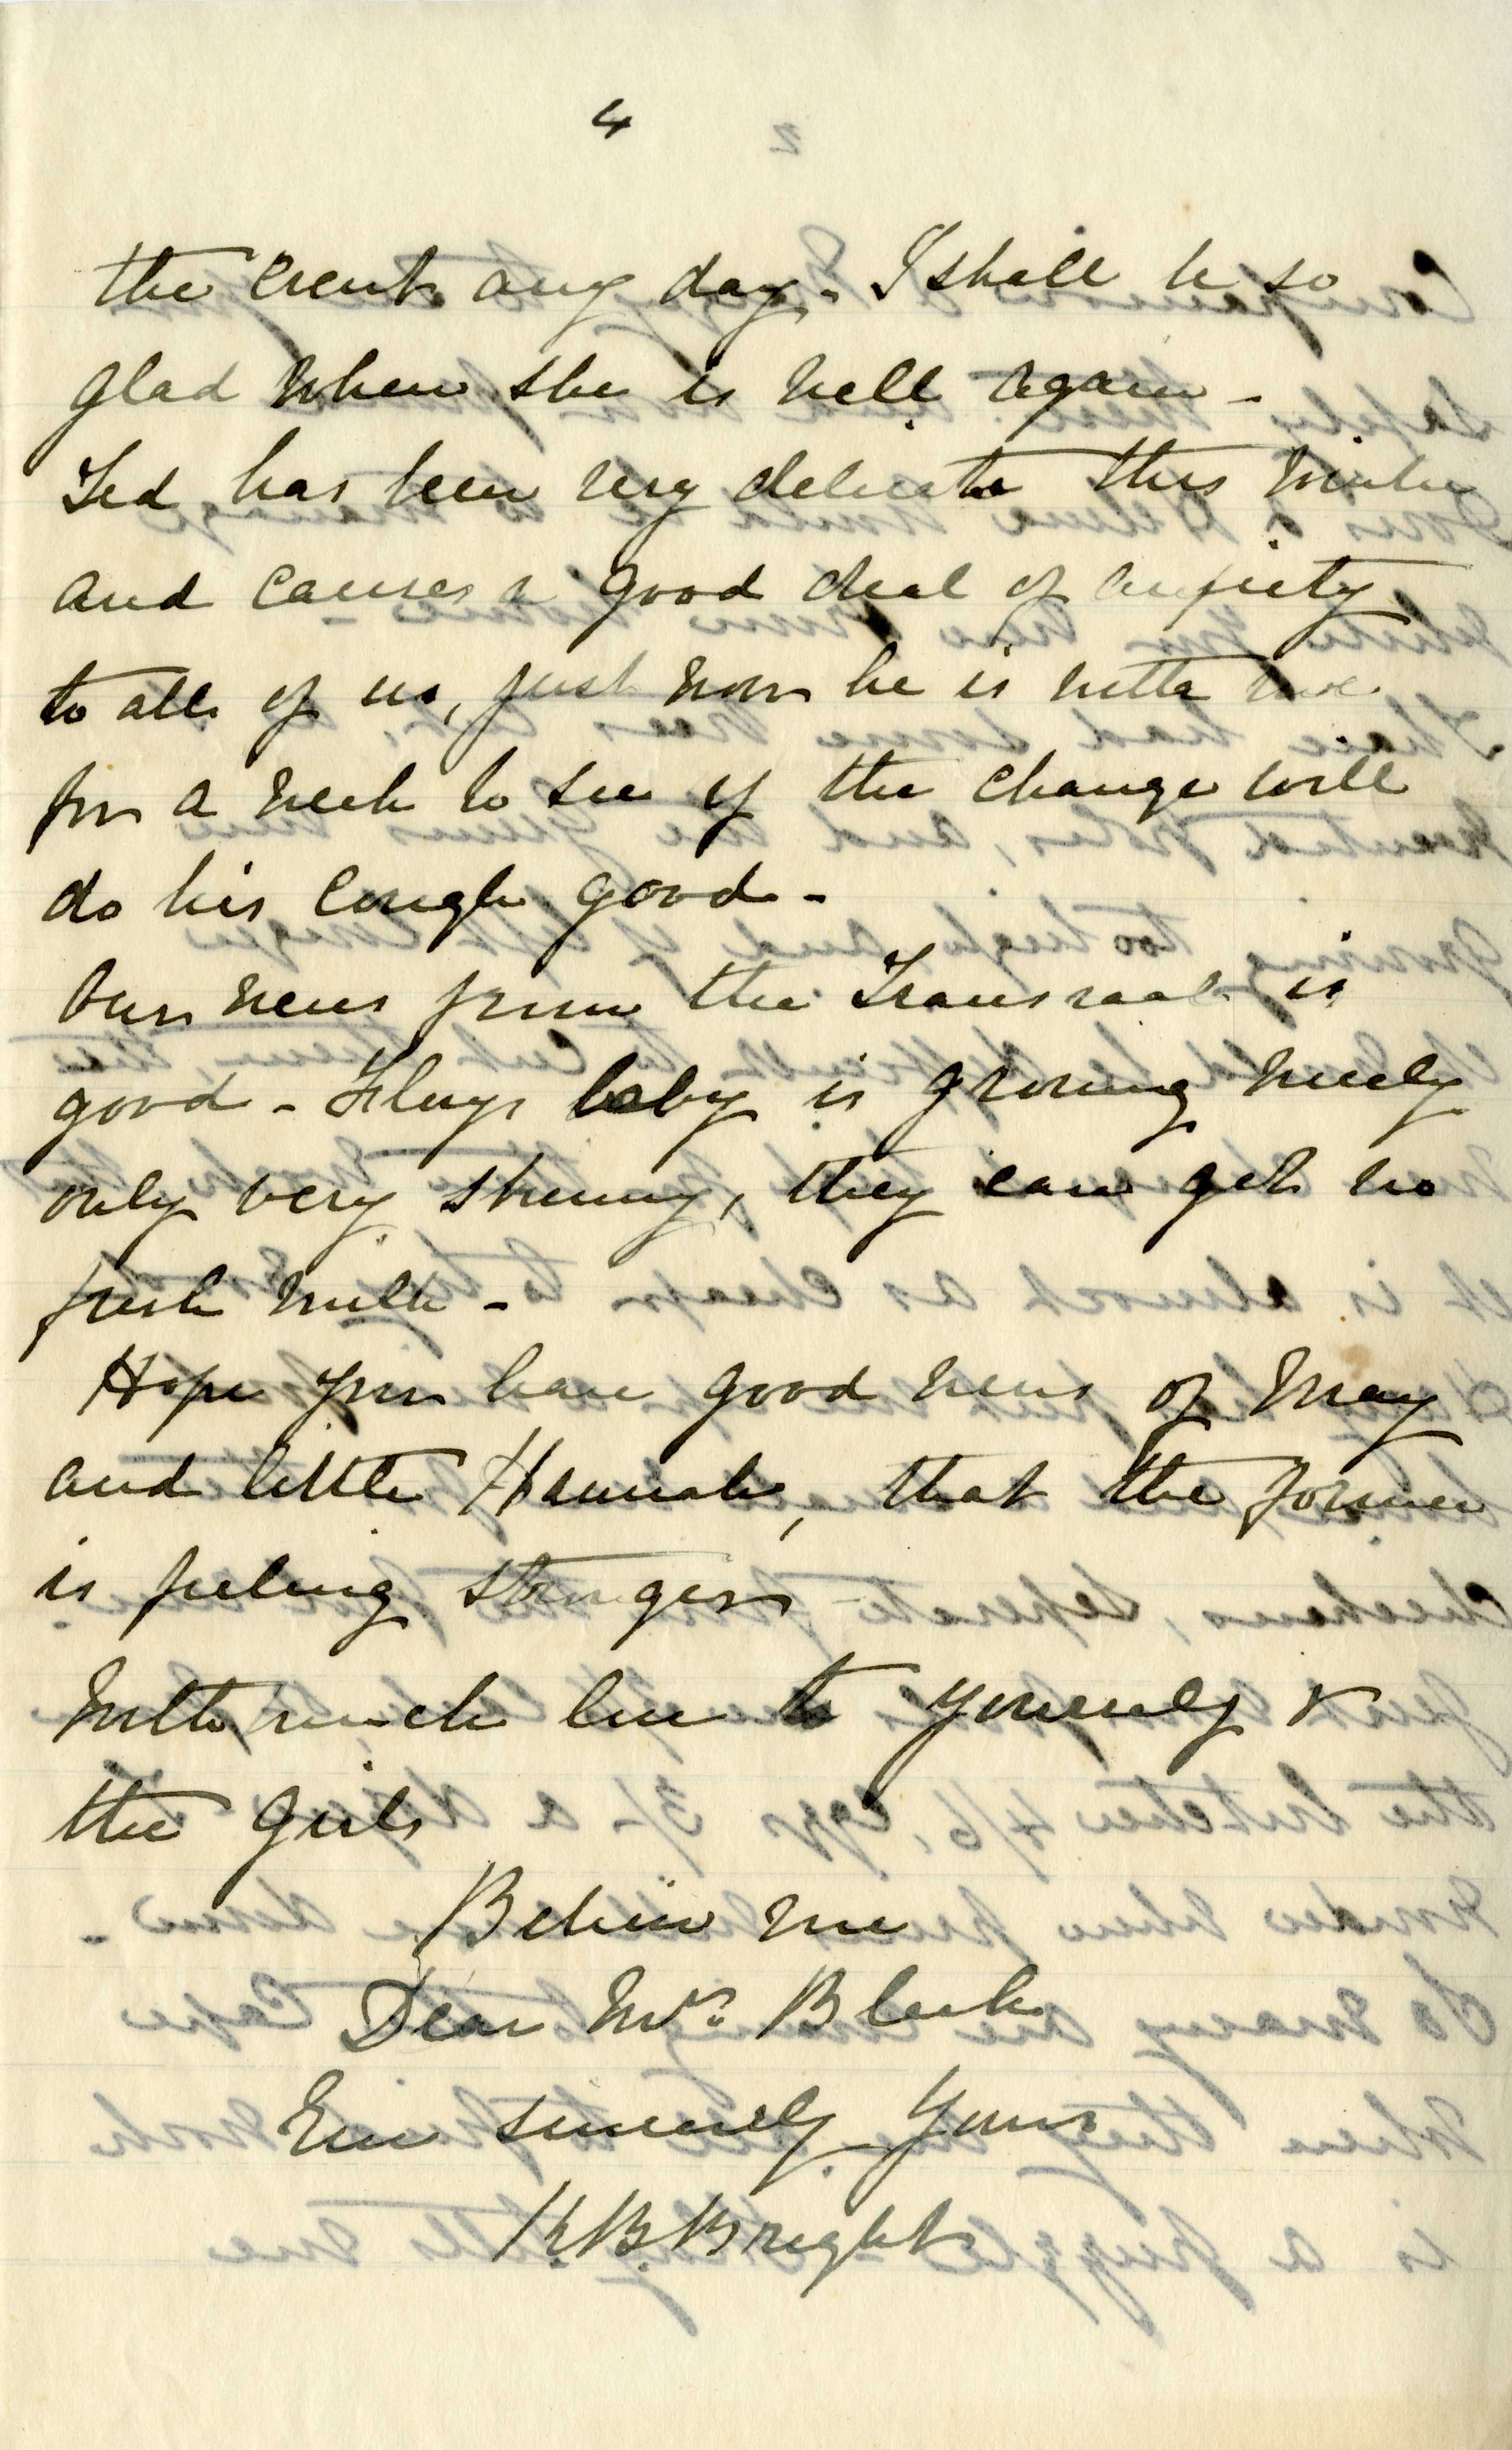 4
the event any day. I shall be so
glad when she is well again -
Ted has been very delicate this winter
and causes a good deal of anxiety
to all of us, just now he is with me
for a week to see if the change will
do his cough good -
Our news from the Transvaal is
good - baby is growing nicely
only very skinny, they can get no
fresh milk -
Hope you have good news of May
and little Hannah, that the former
is feeling stronger
With much love to yourself &
the girls
Believe me
Dear Mrs. Bleek
Ever sincerely Yours
K.B. Bright